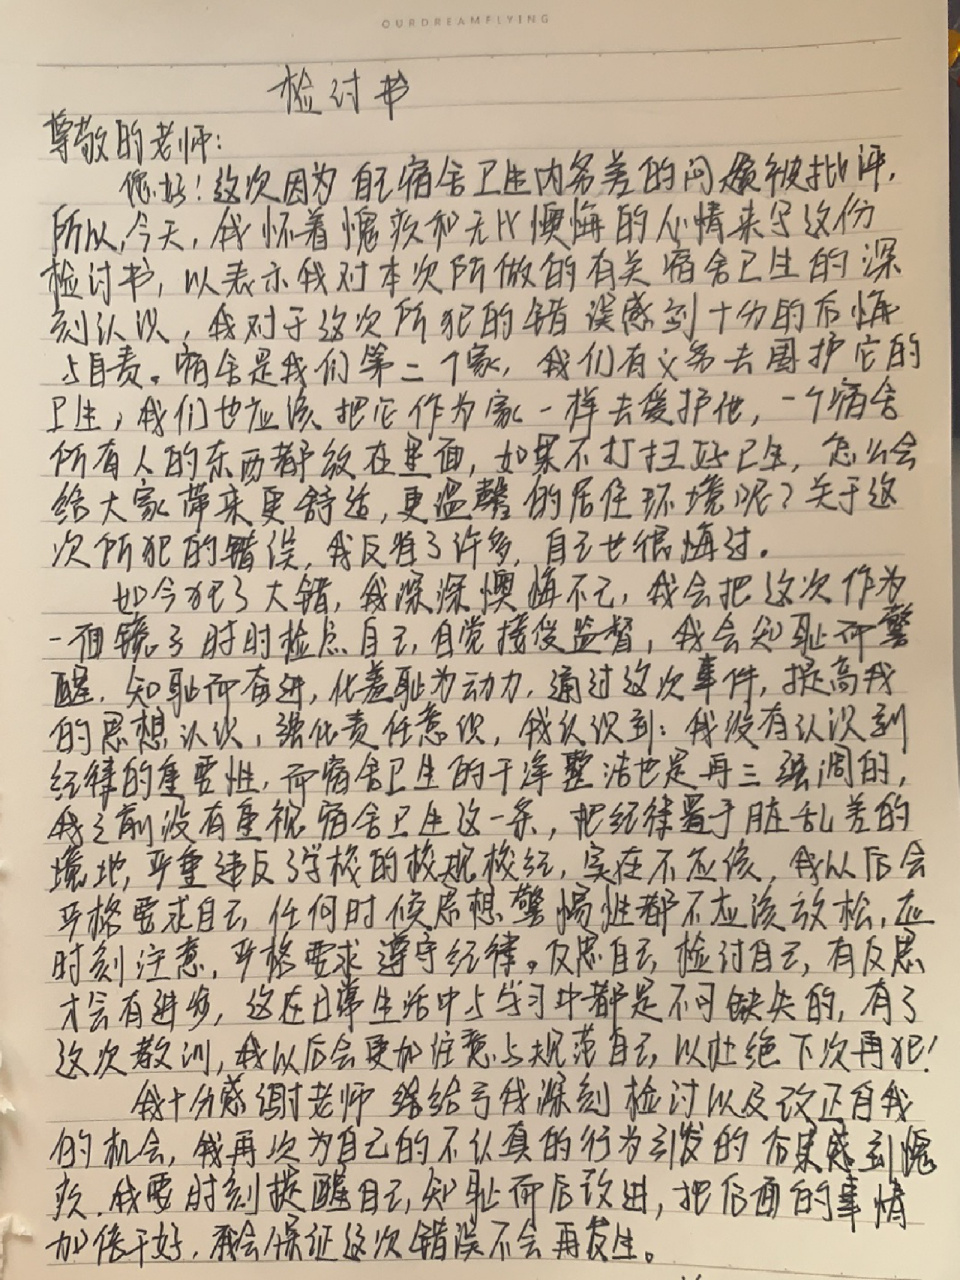 OURDREAMFLYING
检讨书
尊敬的老师:
您好!这次因为自己宿舍卫生内务差的问题被批评,
所以,今天,我怀着愧疚和无比懊悔的心情来写这份
检讨书,以表示我对本次所做的有关宿舍卫生的深
刻认识,我对于这次所犯的错误感到十分的后悔
与自责。宿舍是我们第二个家,我们有义务去围护它的
卫生,我们也应该把它作为家一样去爱护他,一个宿舍
所有人的东西都放在里面,如果不打扫好卫生,怎么会
给大家带来更舒适,更温馨的居住环境呢?关于这
次所犯的错误,我反省了许多,自己也很悔过。
如今犯了大错,我深深懊悔不已,我会把这次作为
一面镜子时时检点自己,自觉接受监督,我会知耻而警
醒,知耻而奋进,化羞耻为动力,通过这次事件,提高我
的思想认识,强化责任意识,我认识到:我没有认识到
纪律的重要性,而宿舍卫生的干净整洁也是再三强调的,
我之前没有重视宿舍卫生这一条,把纪律置于脏乱差的
境地,严重违反了学校的校规校纪,实在不应该,我以后会
严格要求自己,任何时候思想警惕性都不应该放松,应
时刻注意,严格要求遵守纪律。反思自己,检讨自己,有反思
才会有进步,这在日常生活中与学习中都是不可缺失的,有了
这次教训,我以后会更加注意与规范自己,以杜绝下次再犯!
我十分感谢老师给予我深刻检讨以及改正自我
的机会,我再次为自己的不认真的行为引发的后果感到愧
疚,我要时刻提醒自己,知耻而后改进,把后面的事情
加倍干好,我会保证这次错误不会再发生。